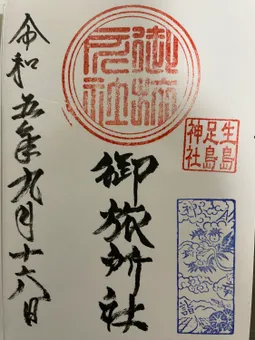 生島
足島
神社
御旅
所社
御旅所社
令和五年九月十六日